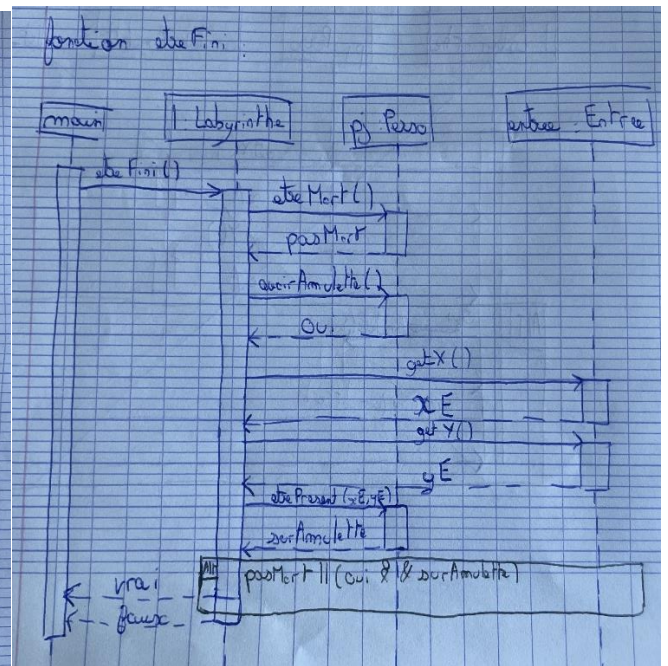 fonction etreFini :
main
l : Labyrinthe
pj : Perso
entree : Entree
etreFini()
etreMort()
pasMort
avoirAmulette()
oui
getX()
xE
getY()
yE
etrePresent(xE,yE)
surAmulette
Alt
pasMort || (oui && surAmulette)
vrai
faux